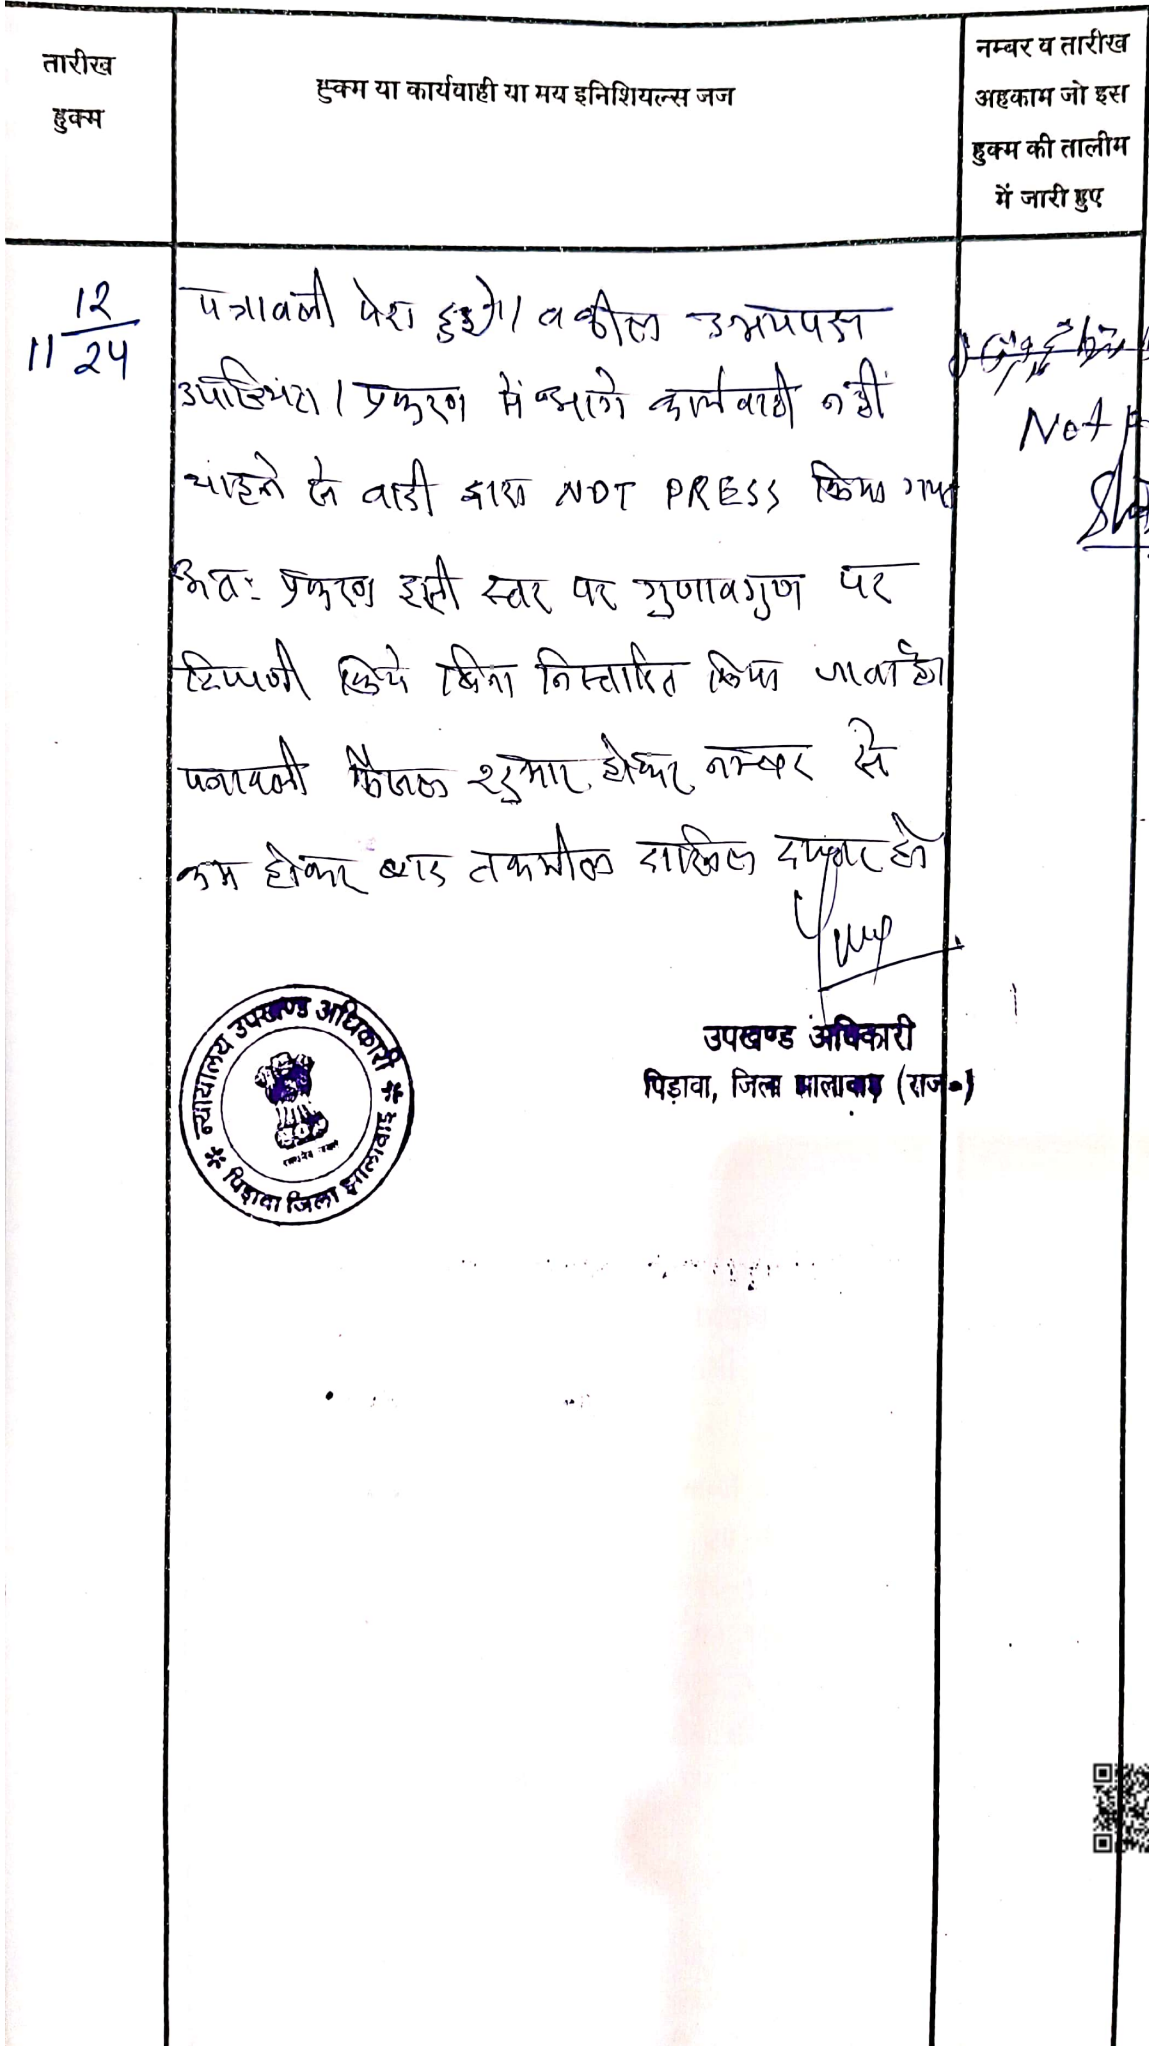 तारीख
हुक्म
हुक्म या कार्यवाही या मय इनिशियल्स जज
नम्बर व तारीख
अहकाम जो इस
हुक्म की तालीम
में जारी हुए
11 12/24
पत्रावली पेश हुई। वकील उभयपक्ष
उपस्थित। प्रकरण में आगे कार्यवाही नहीं
चाहने से वादी द्वारा NOT PRESS किया गया
अतः प्रकरण इसी स्तर पर गुणावगुण पर
टिप्पणी किये बिना निस्तारित किया जाता है।
पत्रावली फैसल शुमार होकर नम्बर से
कम होकर बाद तकमील दाखिल दफ्तर हो
Not
उपखण्ड अधिकारी
पिड़ावा, जिला झालावाड़ (राज०)
न्यायालय उपखण्ड अधिकारी
पिड़ावा जिला झालावाड़